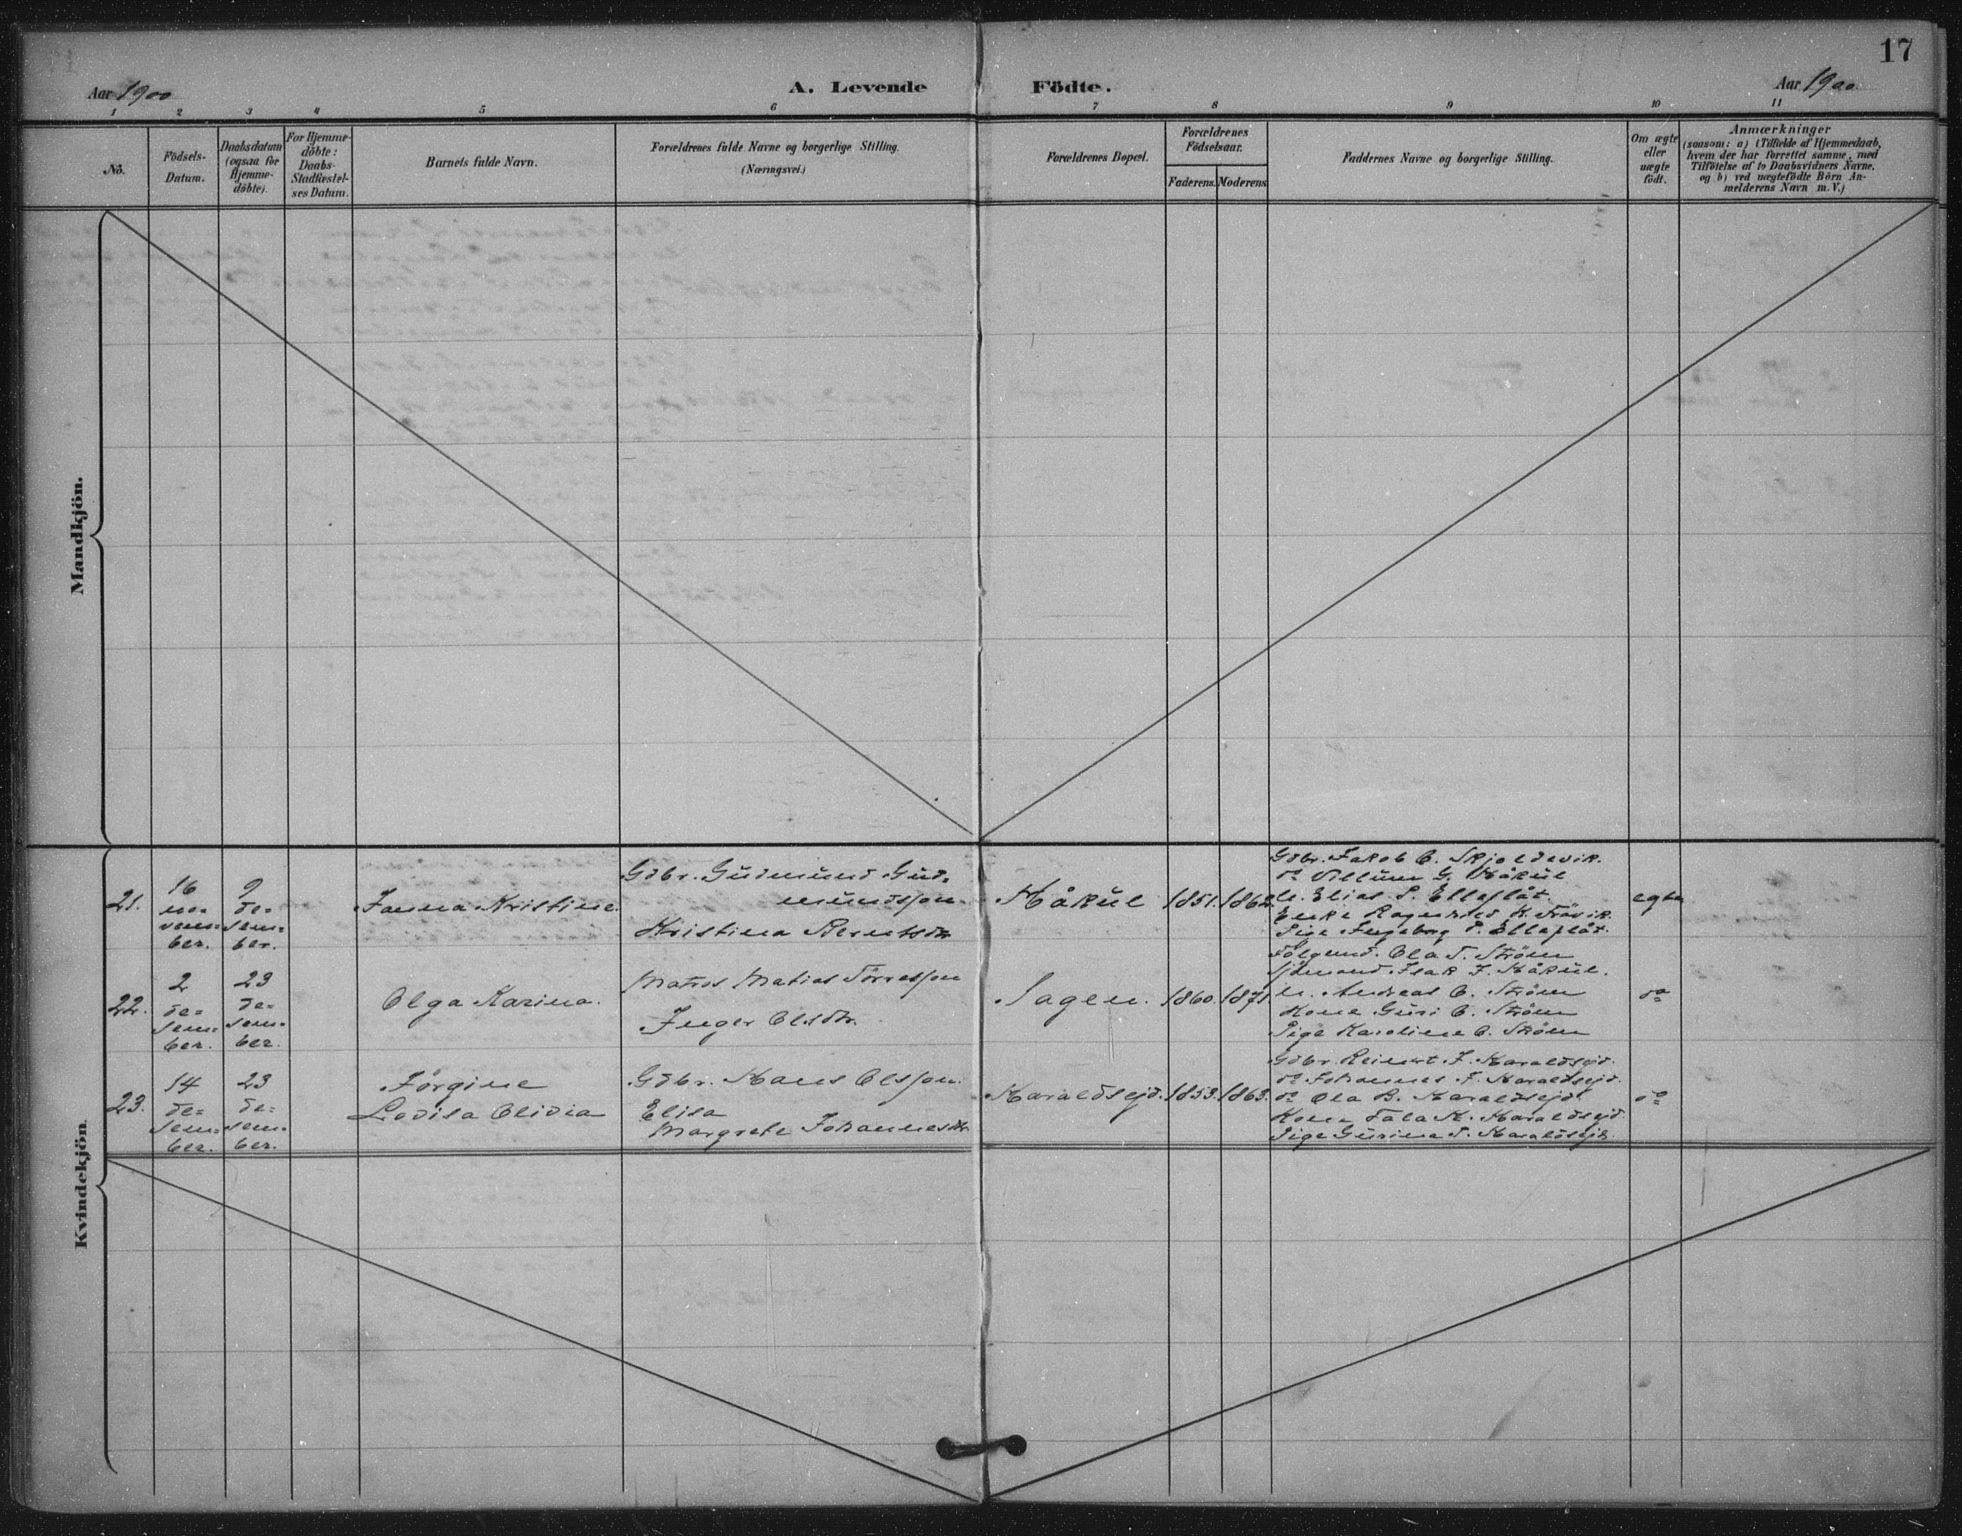 17
Aar 1900
A. Levende Födte.
Aar 1900.
1 2 3 4 5 6 7 8 9 10 11
No.
Födsels-
Datum.
Daabsdatum
(ogsaa for
Hjemme-
döbte).
For Hjemme-
döbte:
Daabs-
Stadfæstel-
ses Datum.
Barnets fulde Navn.
Forældrenes fulde Navne og borgerlige Stilling.
(Næringsvei.)
Forældrenes Bopæl.
Forældrenes
Födselsaar.
Faderens. Moderens.
Faddernes Navne og borgerlige Stilling.
Om ægte
eller
uægte
født.
Anmærkninger
(saasom: a) i Tilfælde af Hjemmedaab,
hvem der har forrettet samme, med
Tilföielse af to Daabsvidners Navne,
og b) ved uægtefödte Börn An-
melderens Navn m. V.)
Mandkjön.
Kvindekjön.
21.
16
no-
vem-
ber.
9
de-
sem-
ber.
Janna Kristine.
Gdbr. Gudmund Gud-
mundssen.
Kristina Berntsdtr.
Håkul
1851. 1862.
Gdbr. Jakob O. Skjoldevik.
do Villum G. Håkul
u. Elias P. Elleflåt.
Enke Ragnhild K.
Pige Ingeborg P. Elleflåt.
egte
22.
2
de-
sem-
ber.
23
de-
sem-
ber.
Olga Karina.
Matros Matias Tørressen
Inger Olsdtr.
Sagen.
1860. 1871.
Følgemd. Ola T. Strøm
Sjømand Isak J. Håkul.
u. Andreas O. Strøm
Kone Guri O. Strøm
Pige Karoline O. Strøm
do
23.
14
de-
sem-
ber.
23
de-
sem-
ber.
Jørgine
Lovisa Olivia
Gdbr. Hans Olssen.
Elisa
Margrete Johannesdtr.
Haraldsejd.
1853. 1863.
Gdbr. Reinert J. Haraldsejd.
do Johannes J. Haraldsejd.
do Ola B. Haraldsejd
Kone Tala H. Haraldsejd
Pige Gurina T. Haraldsejd.
do